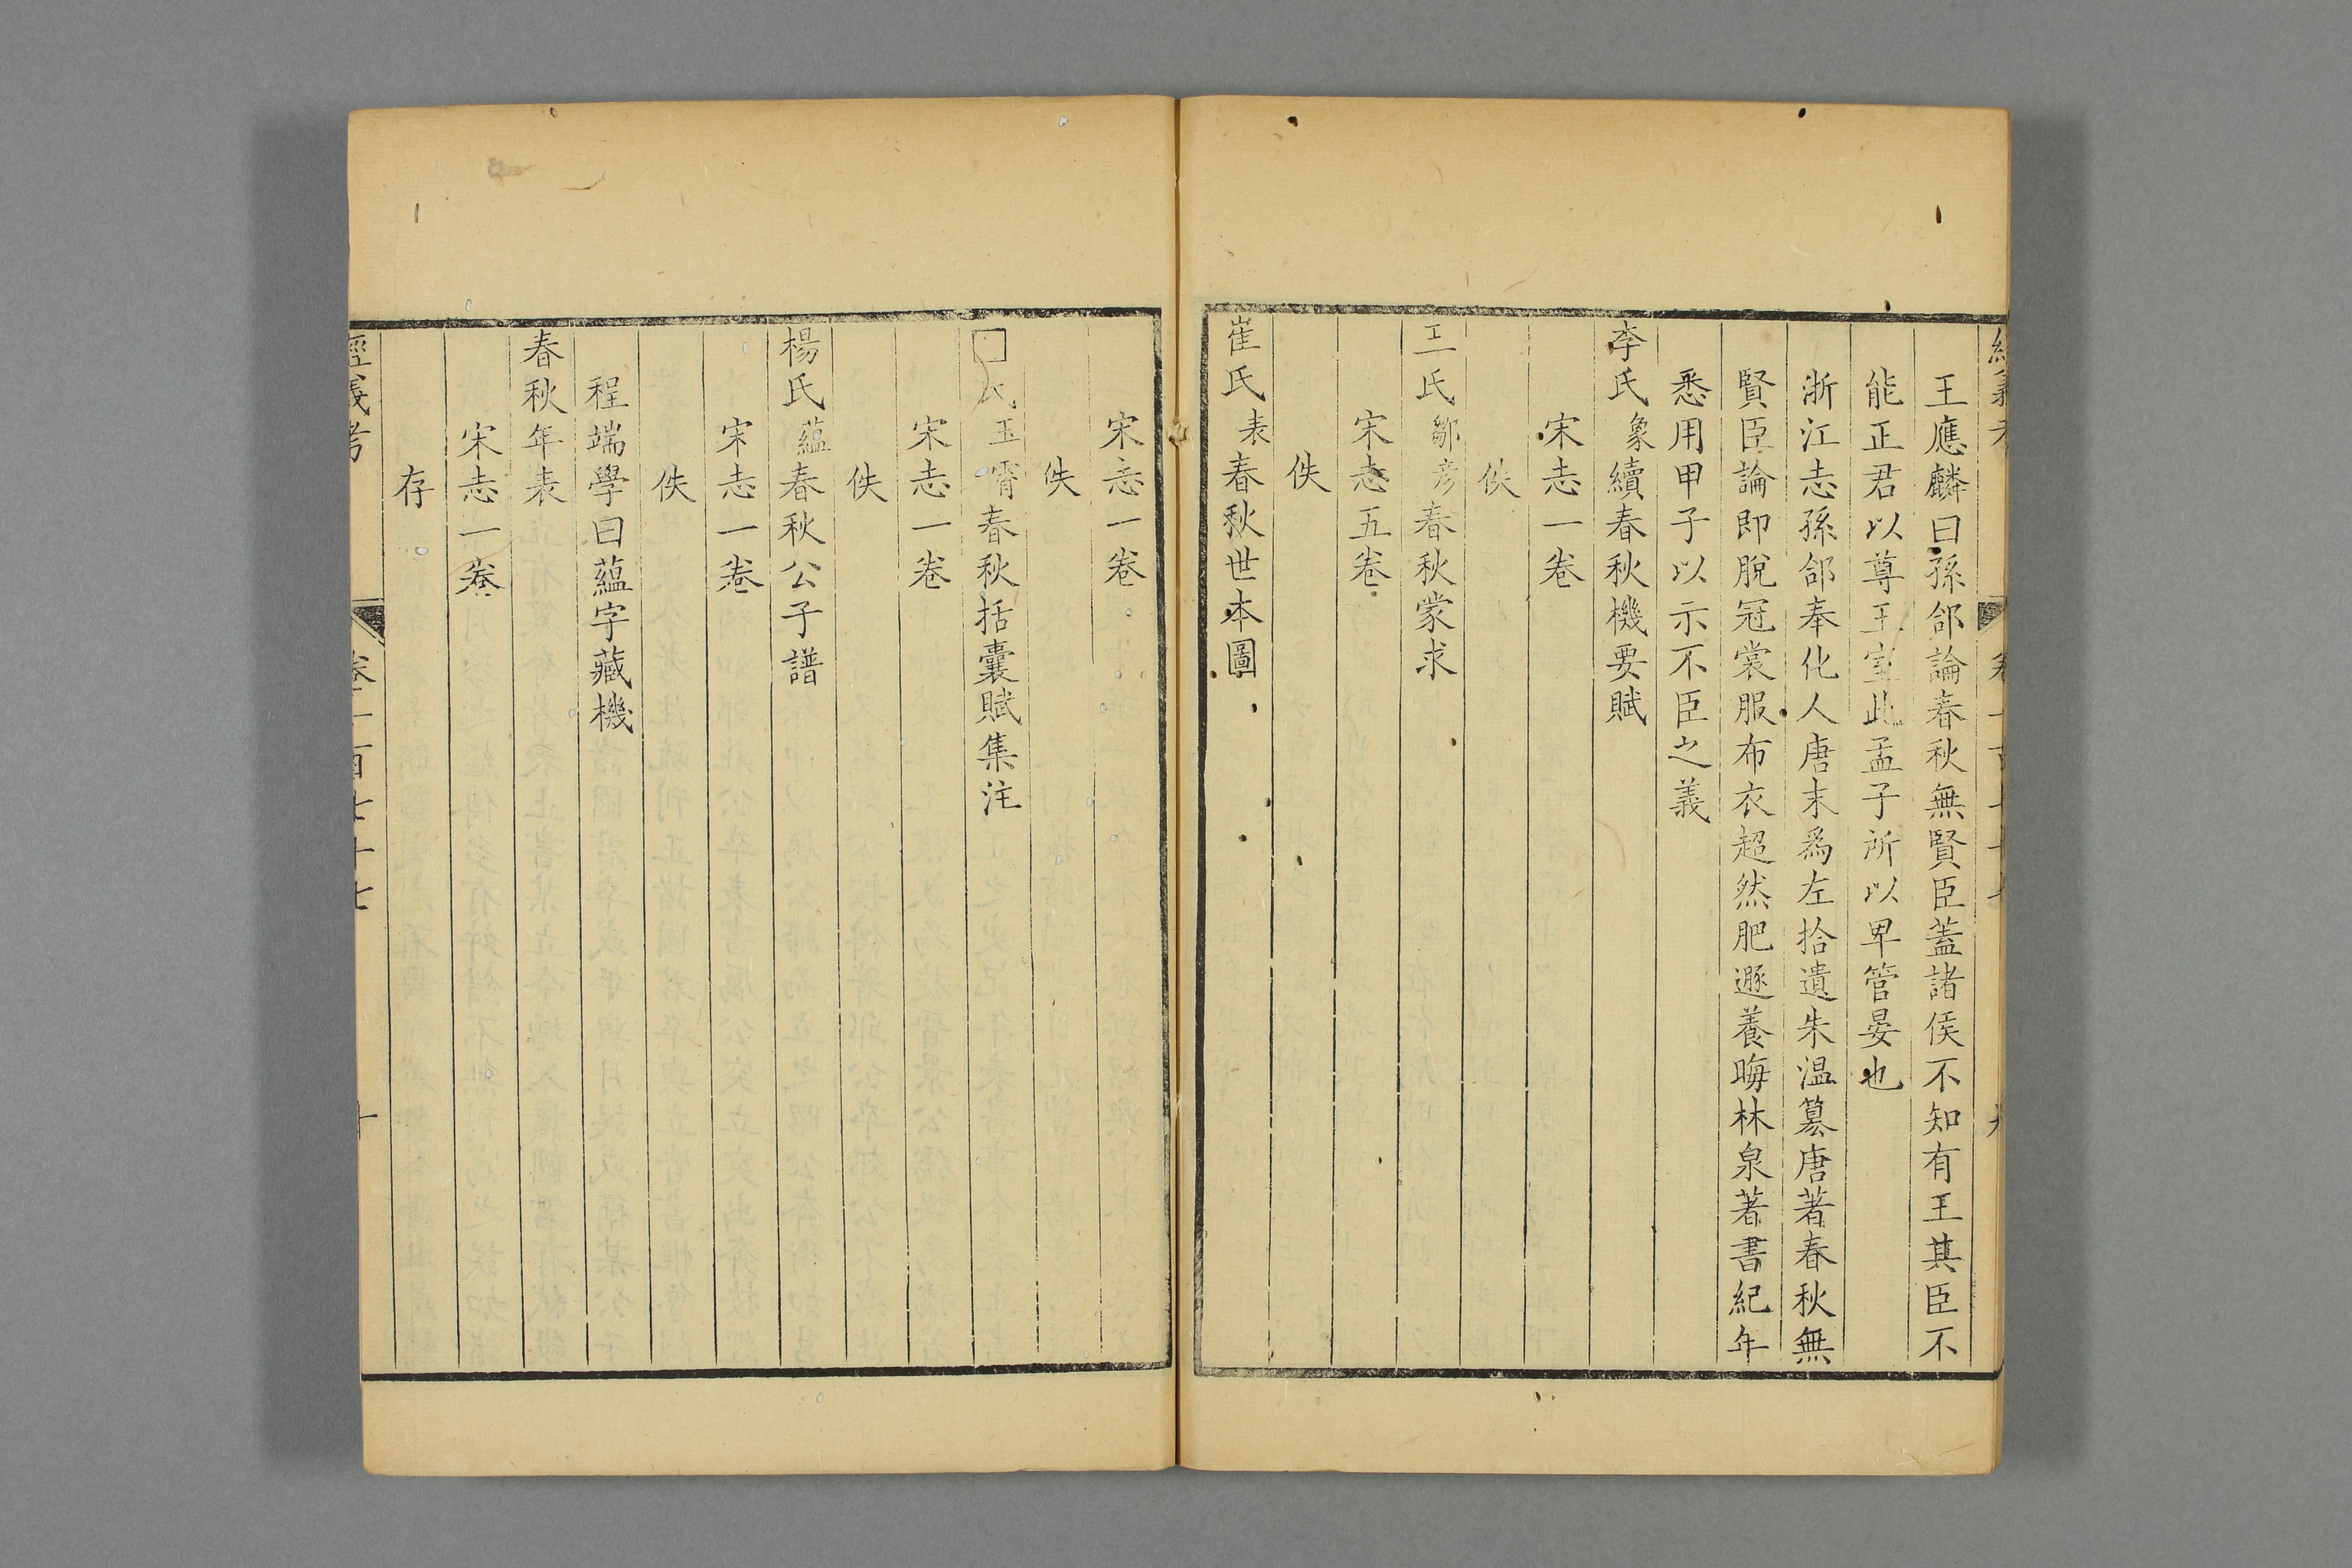 王應麟曰孫郃論春秋無賢臣蓋諸侯不知有王其臣不
能正君以尊王室此孟子所以卑管晏也
浙江志孫郃奉化人唐末爲左拾遺朱溫篡唐著春秋無
賢臣論即脫冠裳服布衣超然肥遯養晦林泉著書紀年
悉用甲子以示不臣之義
李氏象續春秋機要賦
宋志一卷
佚
氏鄒彦春秋蒙求
宋志五卷
佚
崔氏表春秋世本圖
宋志一卷
佚
□氏玉霄春秋括囊賦集注
宋志一卷
佚
楊氏蘊春秋公子譜
宋志一卷
佚
程端學曰蘊字藏機
春秋年表
宋志一卷
存
經義考 卷一百七十七 十